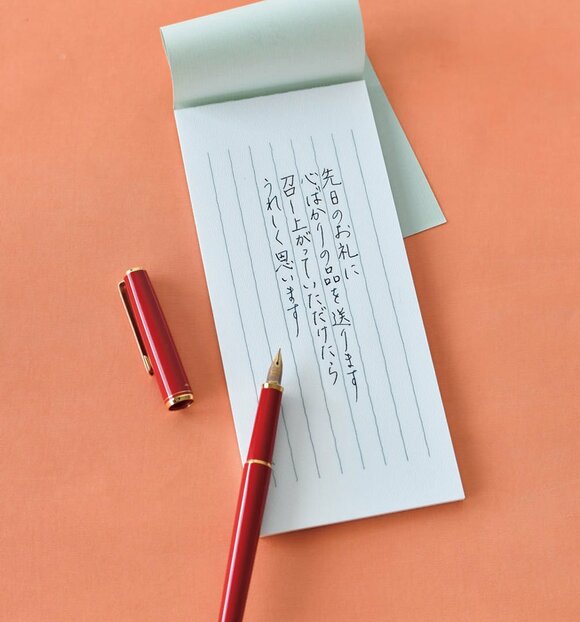 先日のお礼に
心ばかりの品を送ります
召し上がっていただけたら
うれしく思います